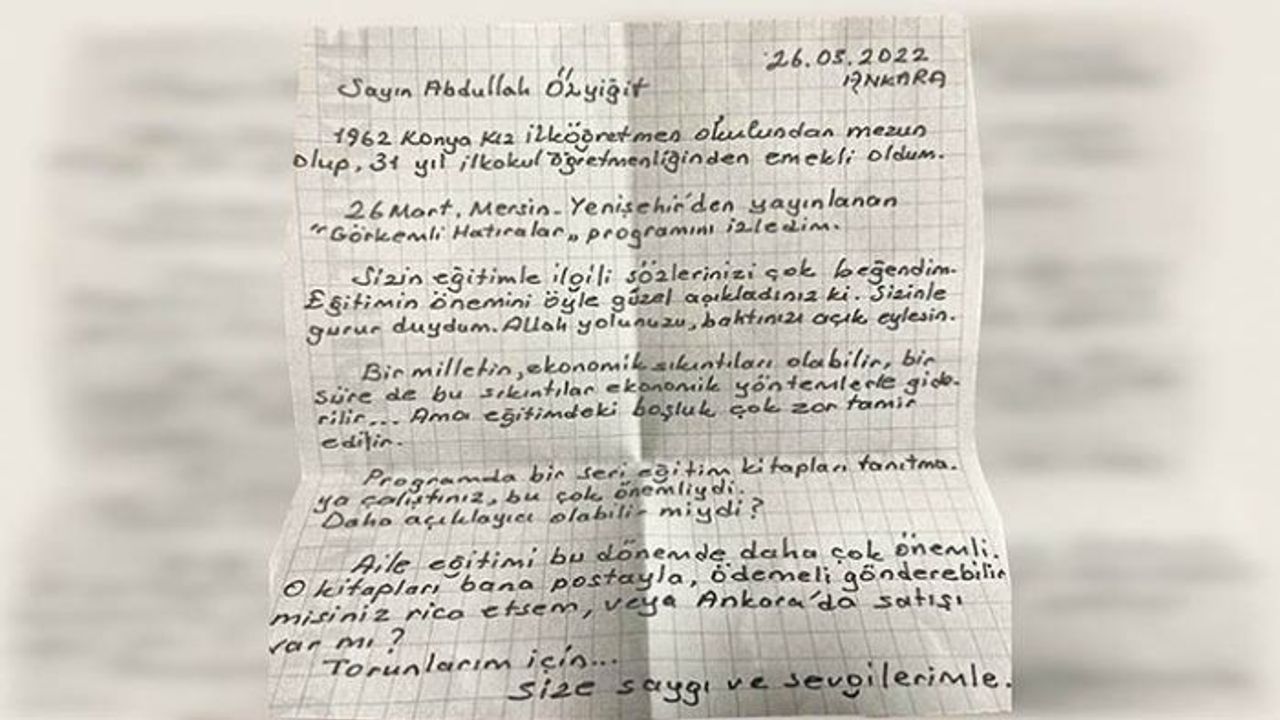 26.03.2022
ANKARA
Sayın Abdullah Özyiğit
1962 Konya Kız ilköğretmen okulundan mezun
olup, 31 yıl ilkokul öğretmenliğinden emekli oldum.
26 Mart, Mersin-Yenişehir'den yayınlanan
"Görkemli Hatıralar„ programını izledim.
Sizin eğitimle ilgili sözlerinizi çok beğendim.
Eğitimin önemini öyle güzel açıkladınız ki. Sizinle
gurur duydum. Allah yolunuzu, bahtınızı açık eylesin.
Bir milletin, ekonomik sıkıntıları olabilir, bir
süre de bu sıkıntılar ekonomik yöntemlerle gide-
rilir... Ama eğitimdeki boşluk çok zor tamir
edilir.
Programda bir seri eğitim kitapları tanıtma-
ya çalıştınız, bu çok önemliydi.
Daha açıklayıcı olabilir miydi?
Aile eğitimi bu dönemde daha çok önemli.
O kitapları bana postayla, ödemeli gönderebilir
misiniz rica etsem, veya Ankara'da satışı
var mı?
Torunlarım için...
Size saygı ve sevgilerimle.